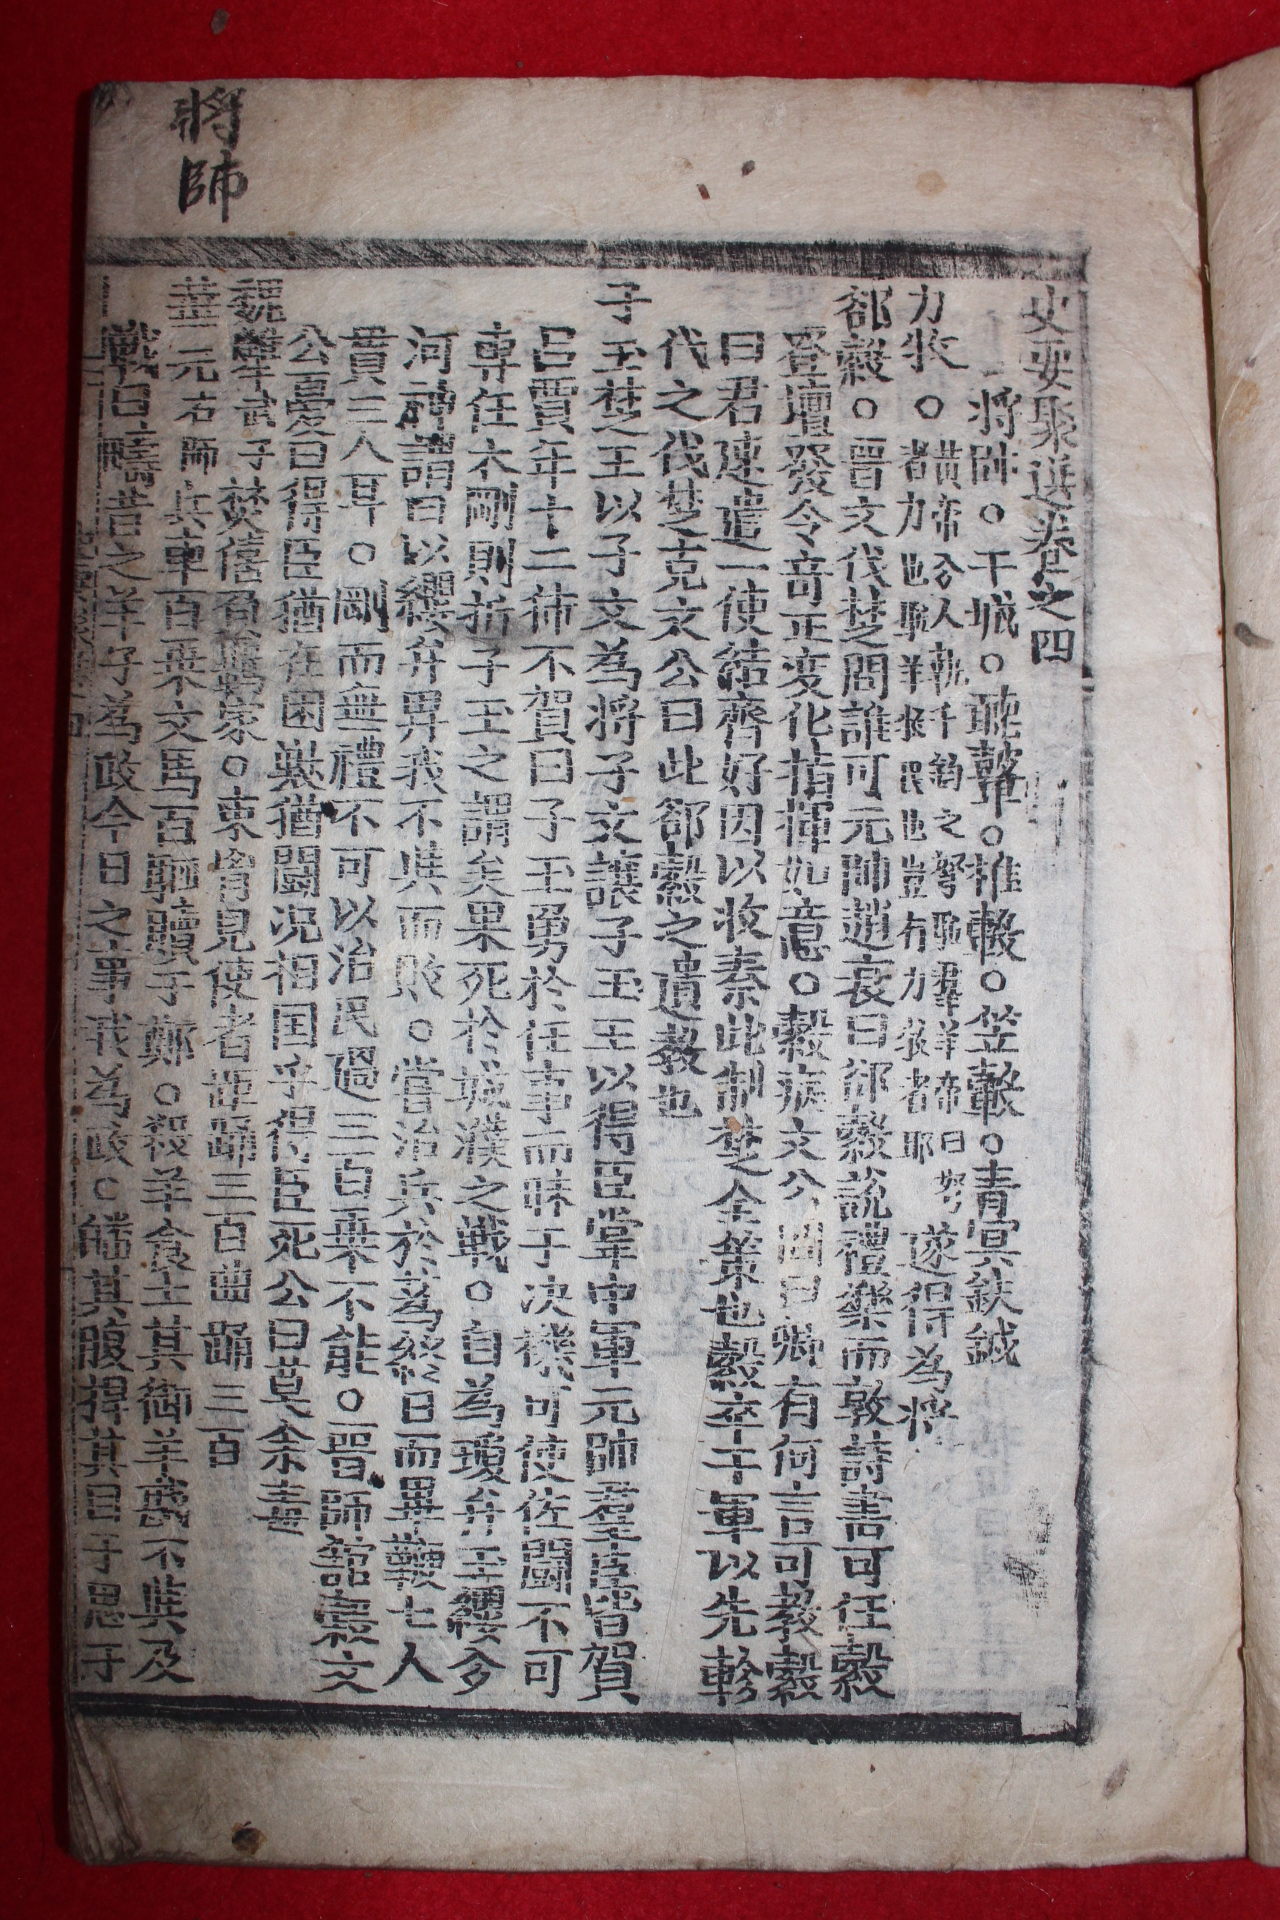 將帥
史要聚選卷之四
將帥○干城○聽鼙○推轂○笠轂○青冥鈇鉞
力牧○黃帝夢人執千鈞之弩駈羣羊帝曰弩
者力也駈羊牧民也豈有力牧者耶遂得為將
郤縠○晋文伐楚問誰可元帥趙衰曰郤縠說禮樂而敦詩書可任縠
登壇發令竒正変化指揮如意○縠疾文公問曰卿有何言可教縠
曰君速遣一使結齊好因以收秦此制楚全策也縠卒于軍以先軫
代之伐楚克文公曰此郤縠之遺教也
子玉楚王以子文為將子文讓子玉王以得臣掌中軍元帥羣臣皆賀
吕賈年十二獨不賀曰子玉勇於任事而昧于决機可使佐鬪不可
專任太剛則折子玉之謂矣果死於城濮之戰○自為瓊弁玉纓夢
河神謂曰以纓弁畀我不與而敗○嘗治兵於蔿終日而畢鞭七人
貫三人耳○剛而無禮不可以治民過三百乗不能○晋師館穀文
公憂曰得臣猶在困獸猶鬪况相国乎得臣死公曰莫余毒
魏犨武子焚僖負羈家○束胷見使者距踊三百曲踊三百
華元右師兵車百乗文馬百駟贖于鄭○殺羊食士其御羊斟不與及
戰曰疇昔之羊子為政今日之事我為政○皤其腹捍其目于思于